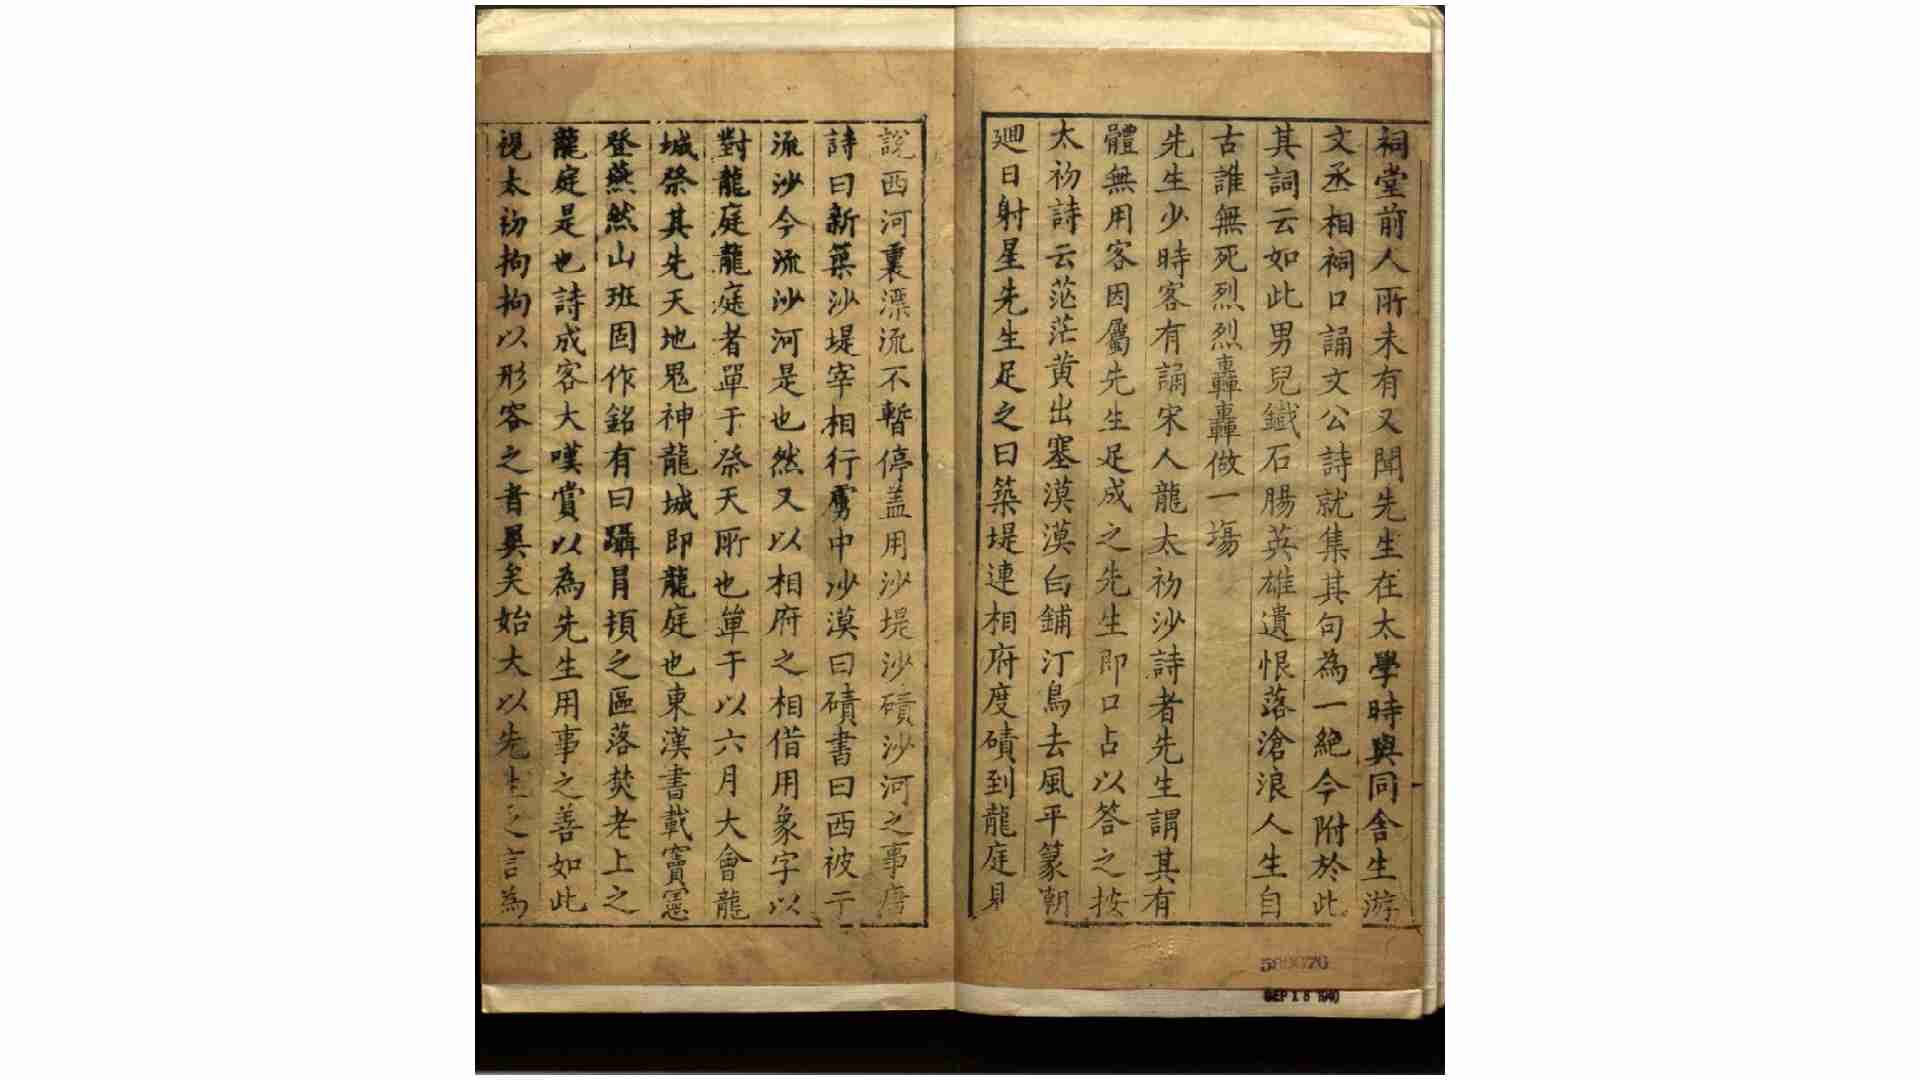 祠堂前人所未有又聞先生在太學時與同舍生游
文丞相祠口誦文公詩就集其句為一絕今附於此
其詞云如此男兒鐵石腸英雄遺恨落滄浪人生自
古誰無死烈烈轟轟做一塲
先生少時客有誦宋人龍太初沙詩者先生謂其有
體無用客因屬先生足成之先生即口占以答之按
太初詩云茫茫黄出塞漠漠白鋪汀鳥去風平篆朝
廻日射星先生足之曰築堤連相府度磧到龍庭見
說西河裏漂流不暫停盖用沙堤沙磧沙河之事唐
詩曰新築沙堤宰相行虜中沙漠曰磧書曰西被于
流沙今流沙河是也然又以相府之相借用象字以
對龍庭龍庭者單于祭天所也單于以六月大會龍
城祭其先天地鬼神龍城即龍庭也東漢書載竇憲
登燕然山班固作銘有曰躡冒頓之區落焚老上之
龍庭是也詩成客大嘆賞以為先生用事之善如此
視太初拘拘以形容之者異矣始太以先生之言為
SEP 18 1940